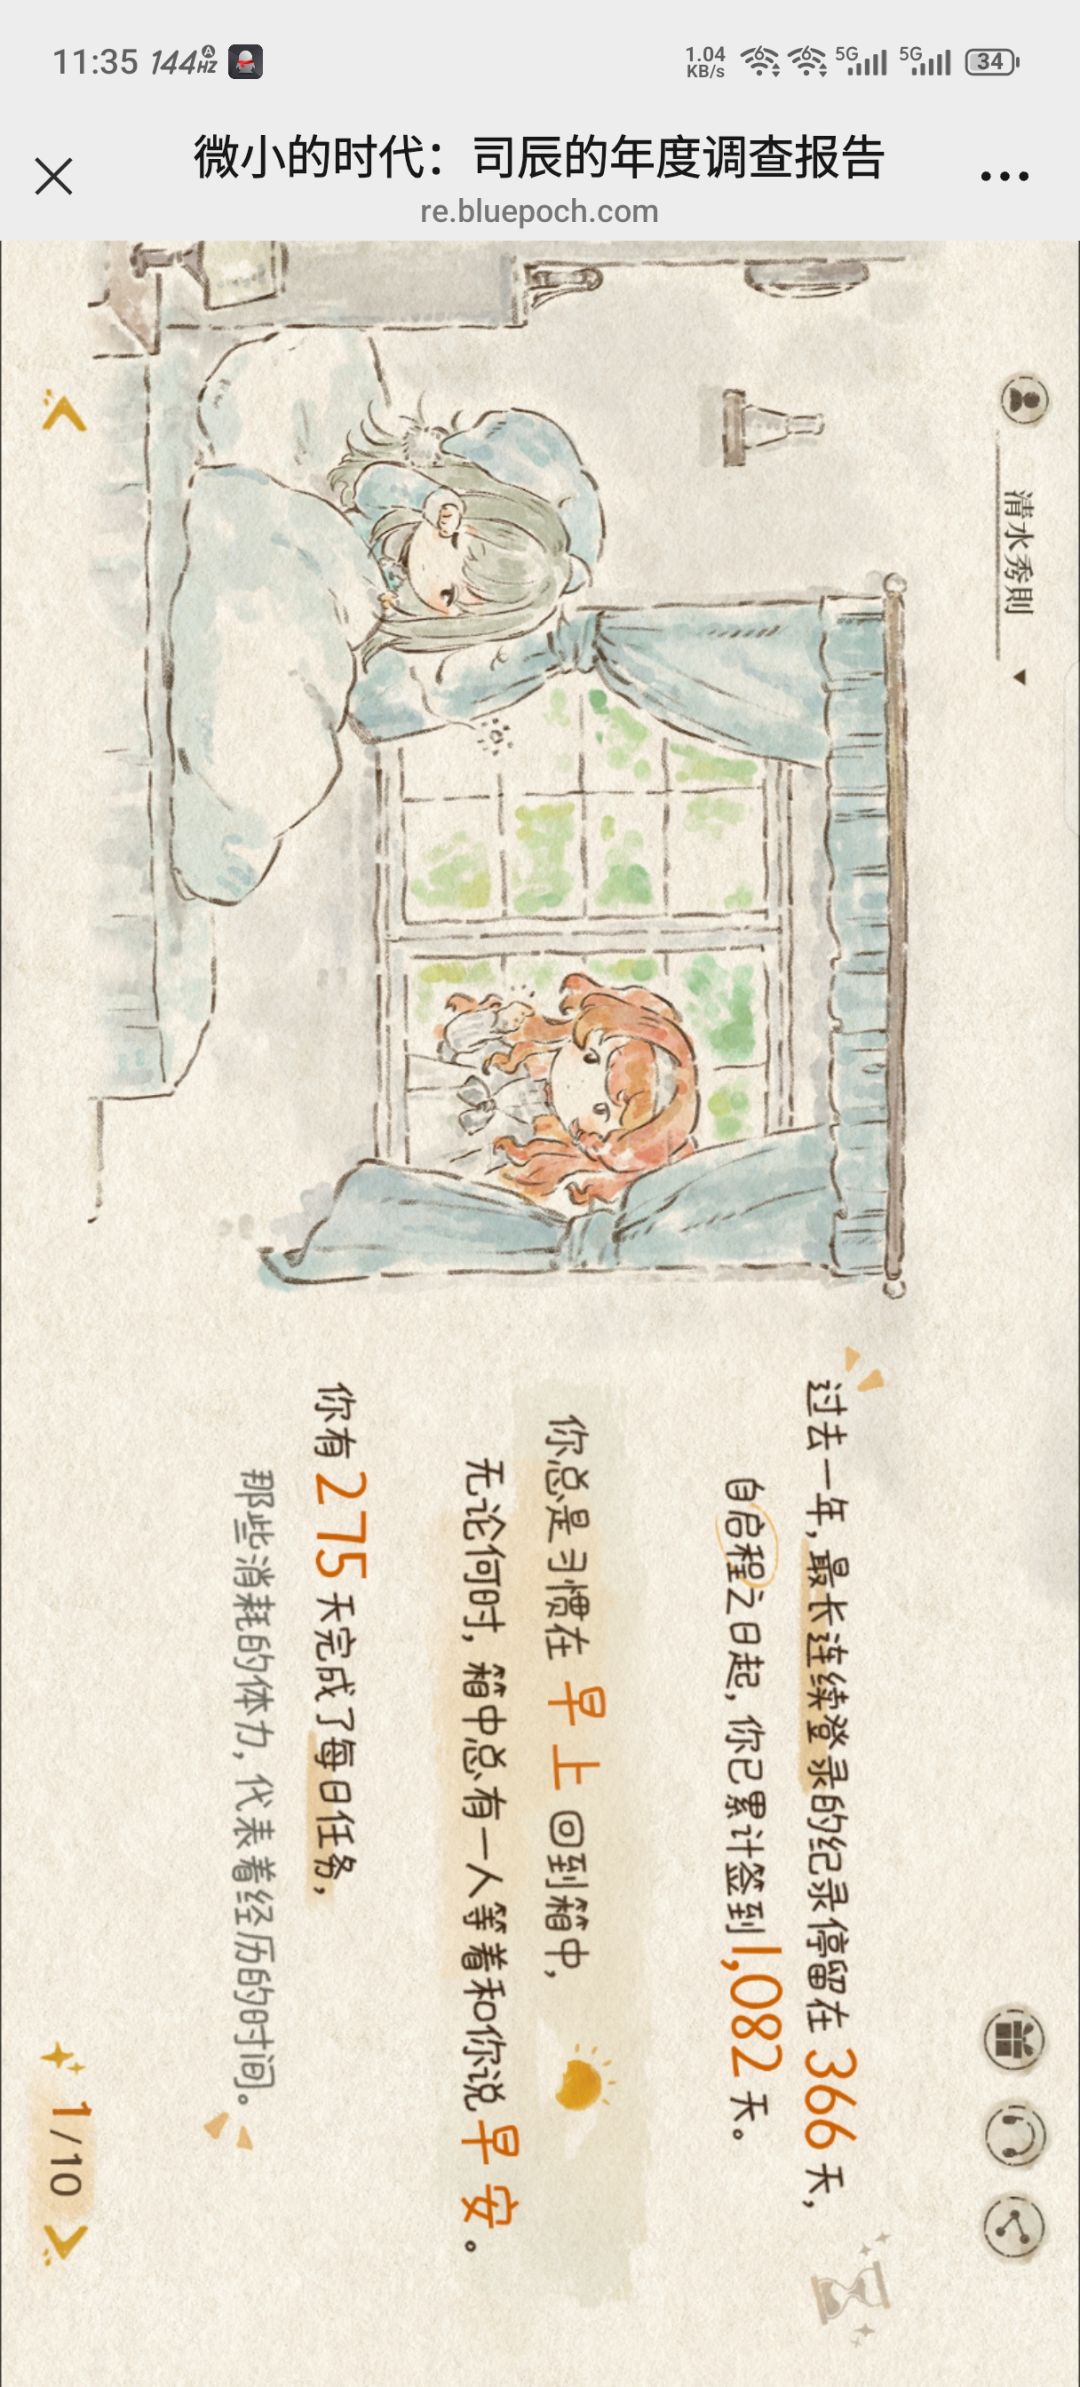 11:35 144HZ A
1.04 KB/s 6 6 5G 5G 34
微小的时代：司辰的年度调查报告
re.bluepoch.com
清水秀則
过去一年，最长连续登录的纪录停留在 366 天，
自启程之日起，你已累计签到1,082天。
你总是习惯在 早上 回到箱中，
无论何时，箱中总有一人等着和你说 早安。
你有 275 天完成了每日任务，
那些消耗的体力，代表着经历的时间。
1/10